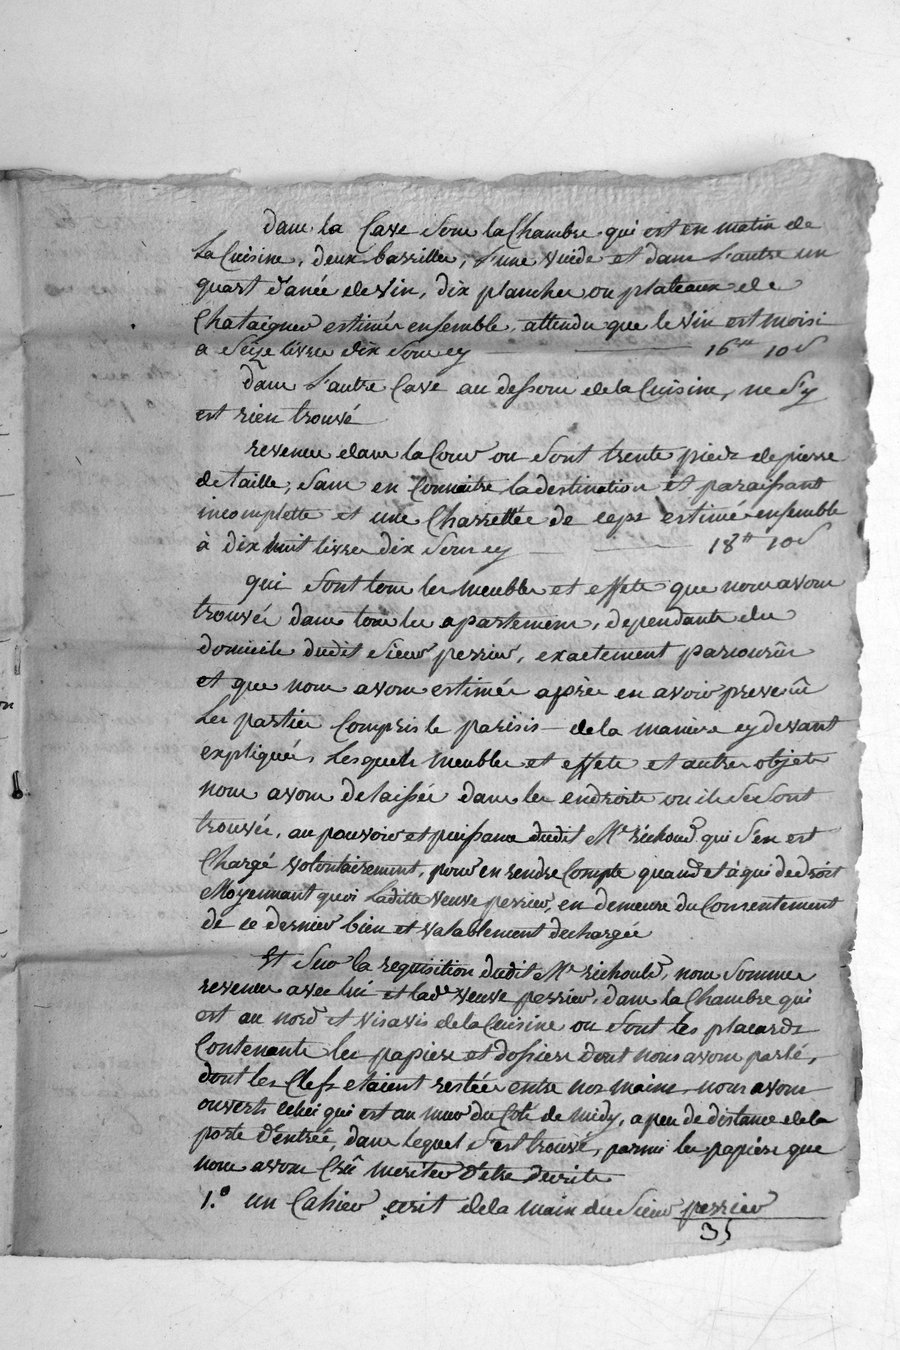 dans la Cave sous la Chambre qui est en matin de
La Cuisine, deux barrilles, l'une vuide et dans l'autre un
quart d'anée de vin, dix planches ou plateaux de
Chataigner estimés ensemble, attendu que le vin est moisi
a Seize livres dix Sous cy 16tt 10s
Dans l'autre Cave au dessous de la Cuisine, ne s'y
est rien trouvé
revenus dans la Cour ou sont trente pieds de pierre
de taille, sans en Connaitre la destination et paraissant
incomplette et une Charrettée de ceps estimés ensemble
à dix huit livres dix Sous cy 18tt 10s
qui sont tous les meubles et effets que nous avons
trouvés dans tous les apartements, dependants du
domicile dudit Sieur perrier, exactement parcourûs
et que nous avons estimés après en avoir prevenû
Les parties Compris le parisis de la maniere cy devant
expliquée, Lesquels meubles et effets et autres objets
nous avons delaissés dans les endroits ou ils se sont
trouvés, au pouvoir et puissance dudit Mr. richoud qui s'en est
Chargé volontairement, pour en rendre Compte quand et à qui de droit
Moyennant quoi Laditte veuve perrier, en demeure du Consentement
de ce dernier bien et valablement dechargée
Et Sur la requisition dudit Mr. richoud, nous Sommes
revenus avec lui et lade. veuve perrier, dans la Chambre qui
est au nord et visavis de la Cuisine ou sont les placards
Contenants les papiers et dossiers dont nous avons parlé,
dont les Clefs etaient restées entre nos mains, nous avons
ouverts celui qui est au mur du Coté de midy, a peu de distance de la
porte d'entrée, dans lequel s'est trouvé, parmi les papiers que
nous avons Crû meriter d'etre decrits
1.° un Cahier ecrit de la main du Sieur perrier
35